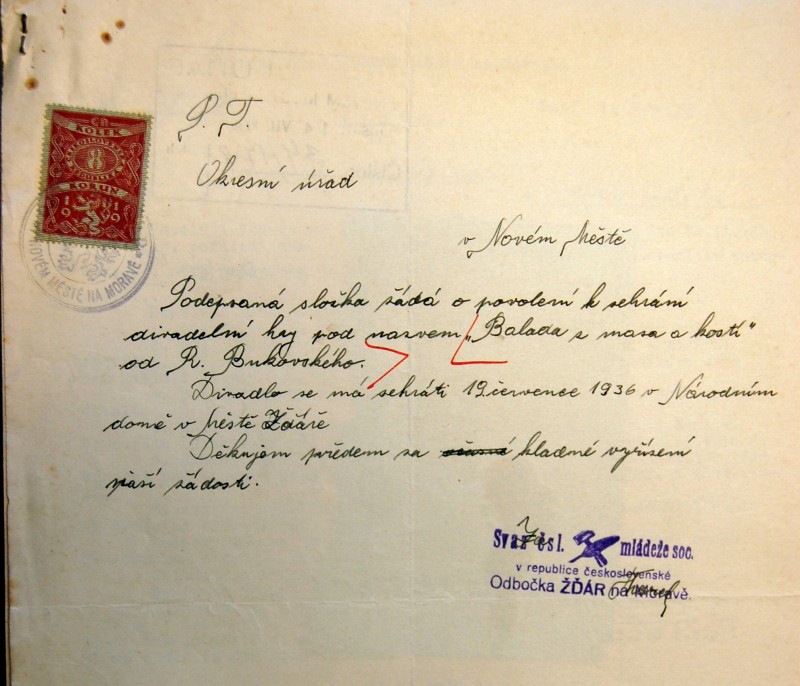 P. T.
ČR
KOLEK
8
KORUN
1 1
9 9
Okresní úřad
v Novém Městě
NOVÉM MĚSTĚ NA MORAVĚ
Podepsaná složka žádá o povolení k sehrání
divadelní hry pod nazvem „Balada z masa a kostí"
od R. Bukovského.
Divadlo se má sehráti 12 července 1936 v Národním
domě v Městě Žďáře
Děkujem předem za kladné vyřízení
naší žádosti.
Za
Svaz čsl. mládeže soc.
v republice československé
Odbočka ŽĎÁR na Moravě.